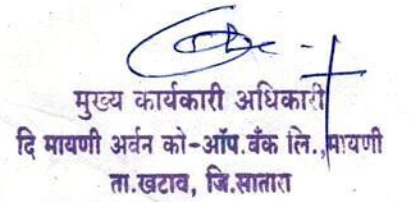 मुख्य कार्यकारी अधिकारी
दि मायणी अर्बन को-ऑप.बँक लि.,मायणी
ता.खटाव, जि.सातारा